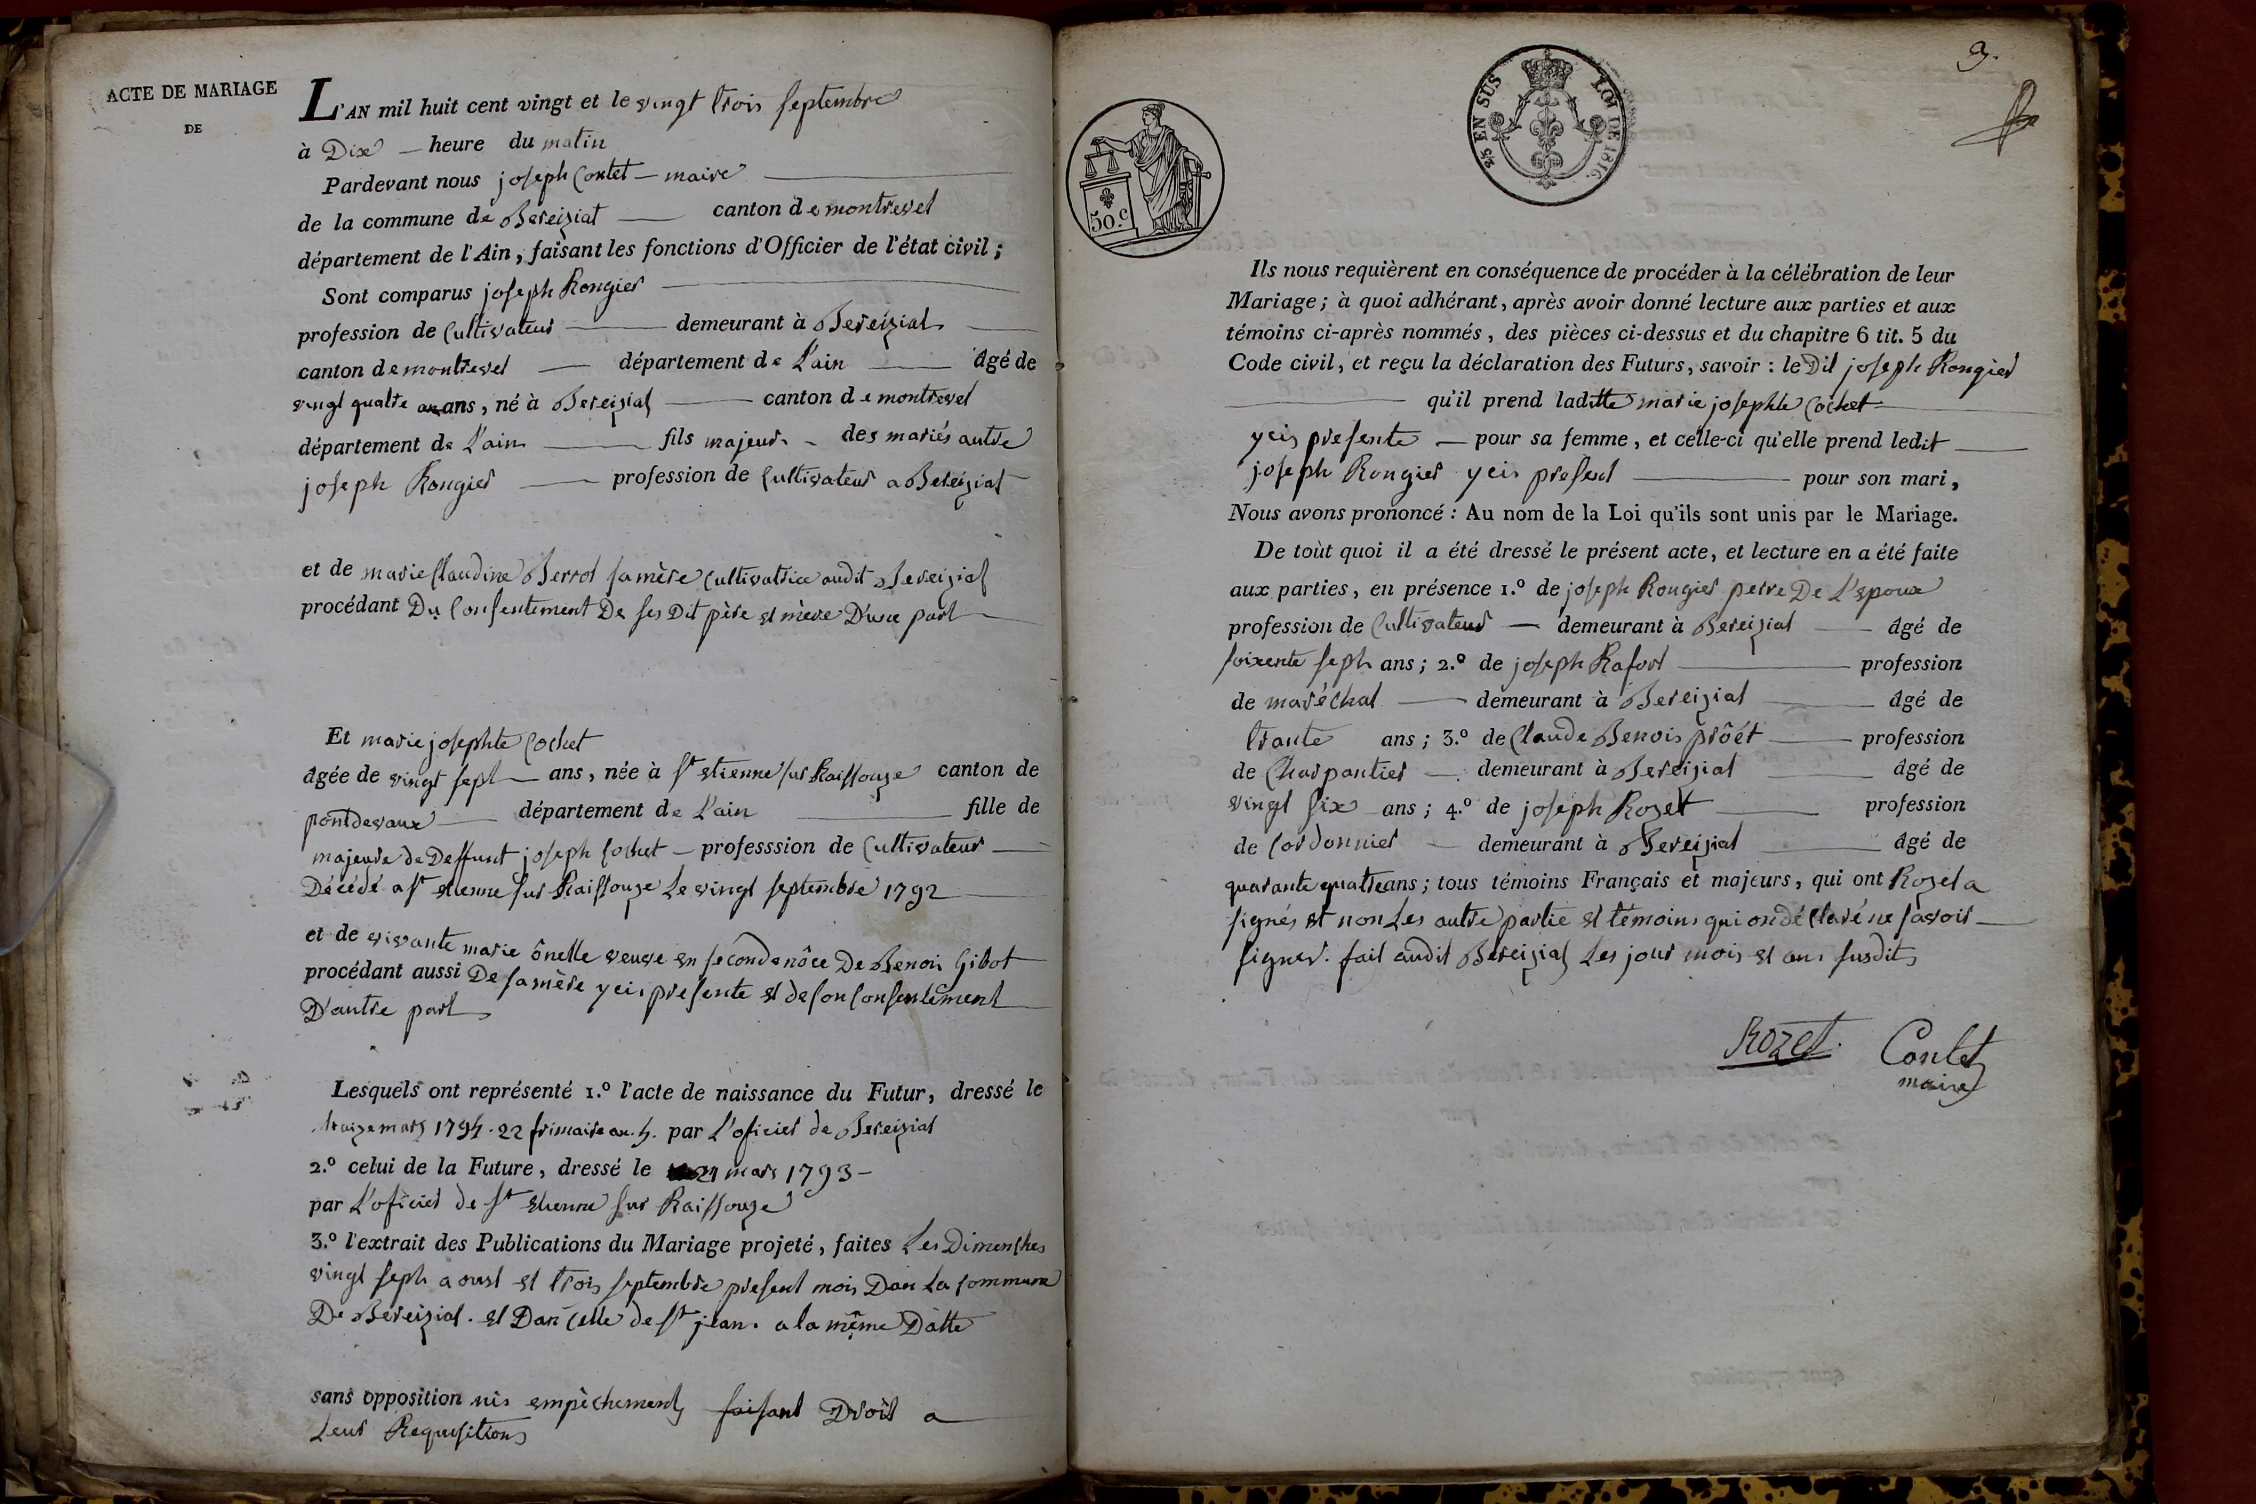 ACTE DE MARIAGE
DE
L'AN mil huit cent vingt et le vingt trois septembre
à Dix heure du matin
Pardevant nous joseph Contet maire
de la commune de Bereiziat canton de montrevel
département de l'Ain, faisant les fonctions d'Officier de l'état civil;
Sont comparus joseph Rongier
profession de Cultivateur demeurant à Bereiziat
canton de montrevel département de L'ain âgé de
vingt quatre ans, né à Bereiziat canton de montrevel
département de L'ain fils majeur des mariés autre
joseph Rongier profession de Cultivateur a Bereiziat
et de marie Claudine Berrot sa mère Cultivatrice audit Bereiziat
procédant Du Consentement De ses Dit père et mère D'une part
Et marie josephte Cochet
âgée de vingt sept ans, née à St etienne sur Raissouze canton de
pontdevaux département de L'ain fille de
majeure de Deffunt joseph Cochet professsion de Cultivateur
Décédé a St etienne sur Raissouze Le vingt septembre 1792
et de vivante marie ônelle veuve en seconde nôce De Benoit Gibot
procédant aussi De sa mère yci presente et de son Consentement
D'autre part
Lesquels ont représenté 1.º l'acte de naissance du Futur, dressé le
mars 1794. 22 frimaire an. 5. par L'oficier de Bereiziat
2.º celui de la Future, dressé le 21 mars 1793
par L'oficier de St etienne sur Raissouze
3.º l'extrait des Publications du Mariage projeté, faites Les Dimenches
vingt seph aoust et trois septembre present mois Dan La Commune
De Bereiziat. et Dan Celle de St jean. a la même Datte
sans opposition nis empêchement faisant Droit a
Leur Requisitions
9.
50.c
2/5 EN SUS LOI DE 1816.
Ils nous requièrent en conséquence de procéder à la célébration de leur
Mariage; à quoi adhérant, après avoir donné lecture aux parties et aux
témoins ci-après nommés, des pièces ci-dessus et du chapitre 6 tit. 5 du
Code civil, et reçu la déclaration des Futurs, savoir: le Dit joseph Rongier
qu'il prend laditte marie josephte Cochet
yci presente pour sa femme, et celle-ci qu'elle prend ledit
joseph Rongier yci present pour son mari,
Nous avons prononcé: Au nom de la Loi qu'ils sont unis par le Mariage.
De tout quoi il a été dressé le présent acte, et lecture en a été faite
aux parties, en présence 1.º de joseph Rongier perre De L'epoux
profession de Cultivateur demeurant à Bereiziat âgé de
soixente seph ans; 2.º de joseph Rafort profession
de maréchal demeurant à Bereiziat âgé de
trante ans; 3.º de Claude Benois prôét profession
de Charpantier demeurant à Bereiziat âgé de
vingt six ans; 4.º de joseph Rozet profession
de Cordonnier demeurant à Bereiziat âgé de
quarante quatre ans; tous témoins Français et majeurs, qui ont Rozet a
signés et non Les autre partie et témoins qui on déClaré ne savoir
signer. fait audit Bereiziat Les jour mois et ans susdits
Rozet. Contet
maire